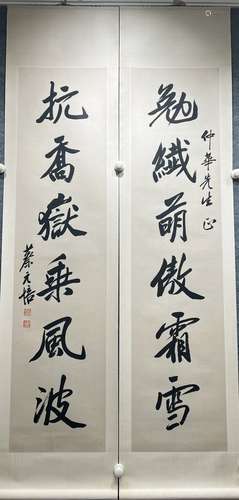 仲華先生正
勉纖萌傲霜雪
抗喬嶽乘風波
蔡元培